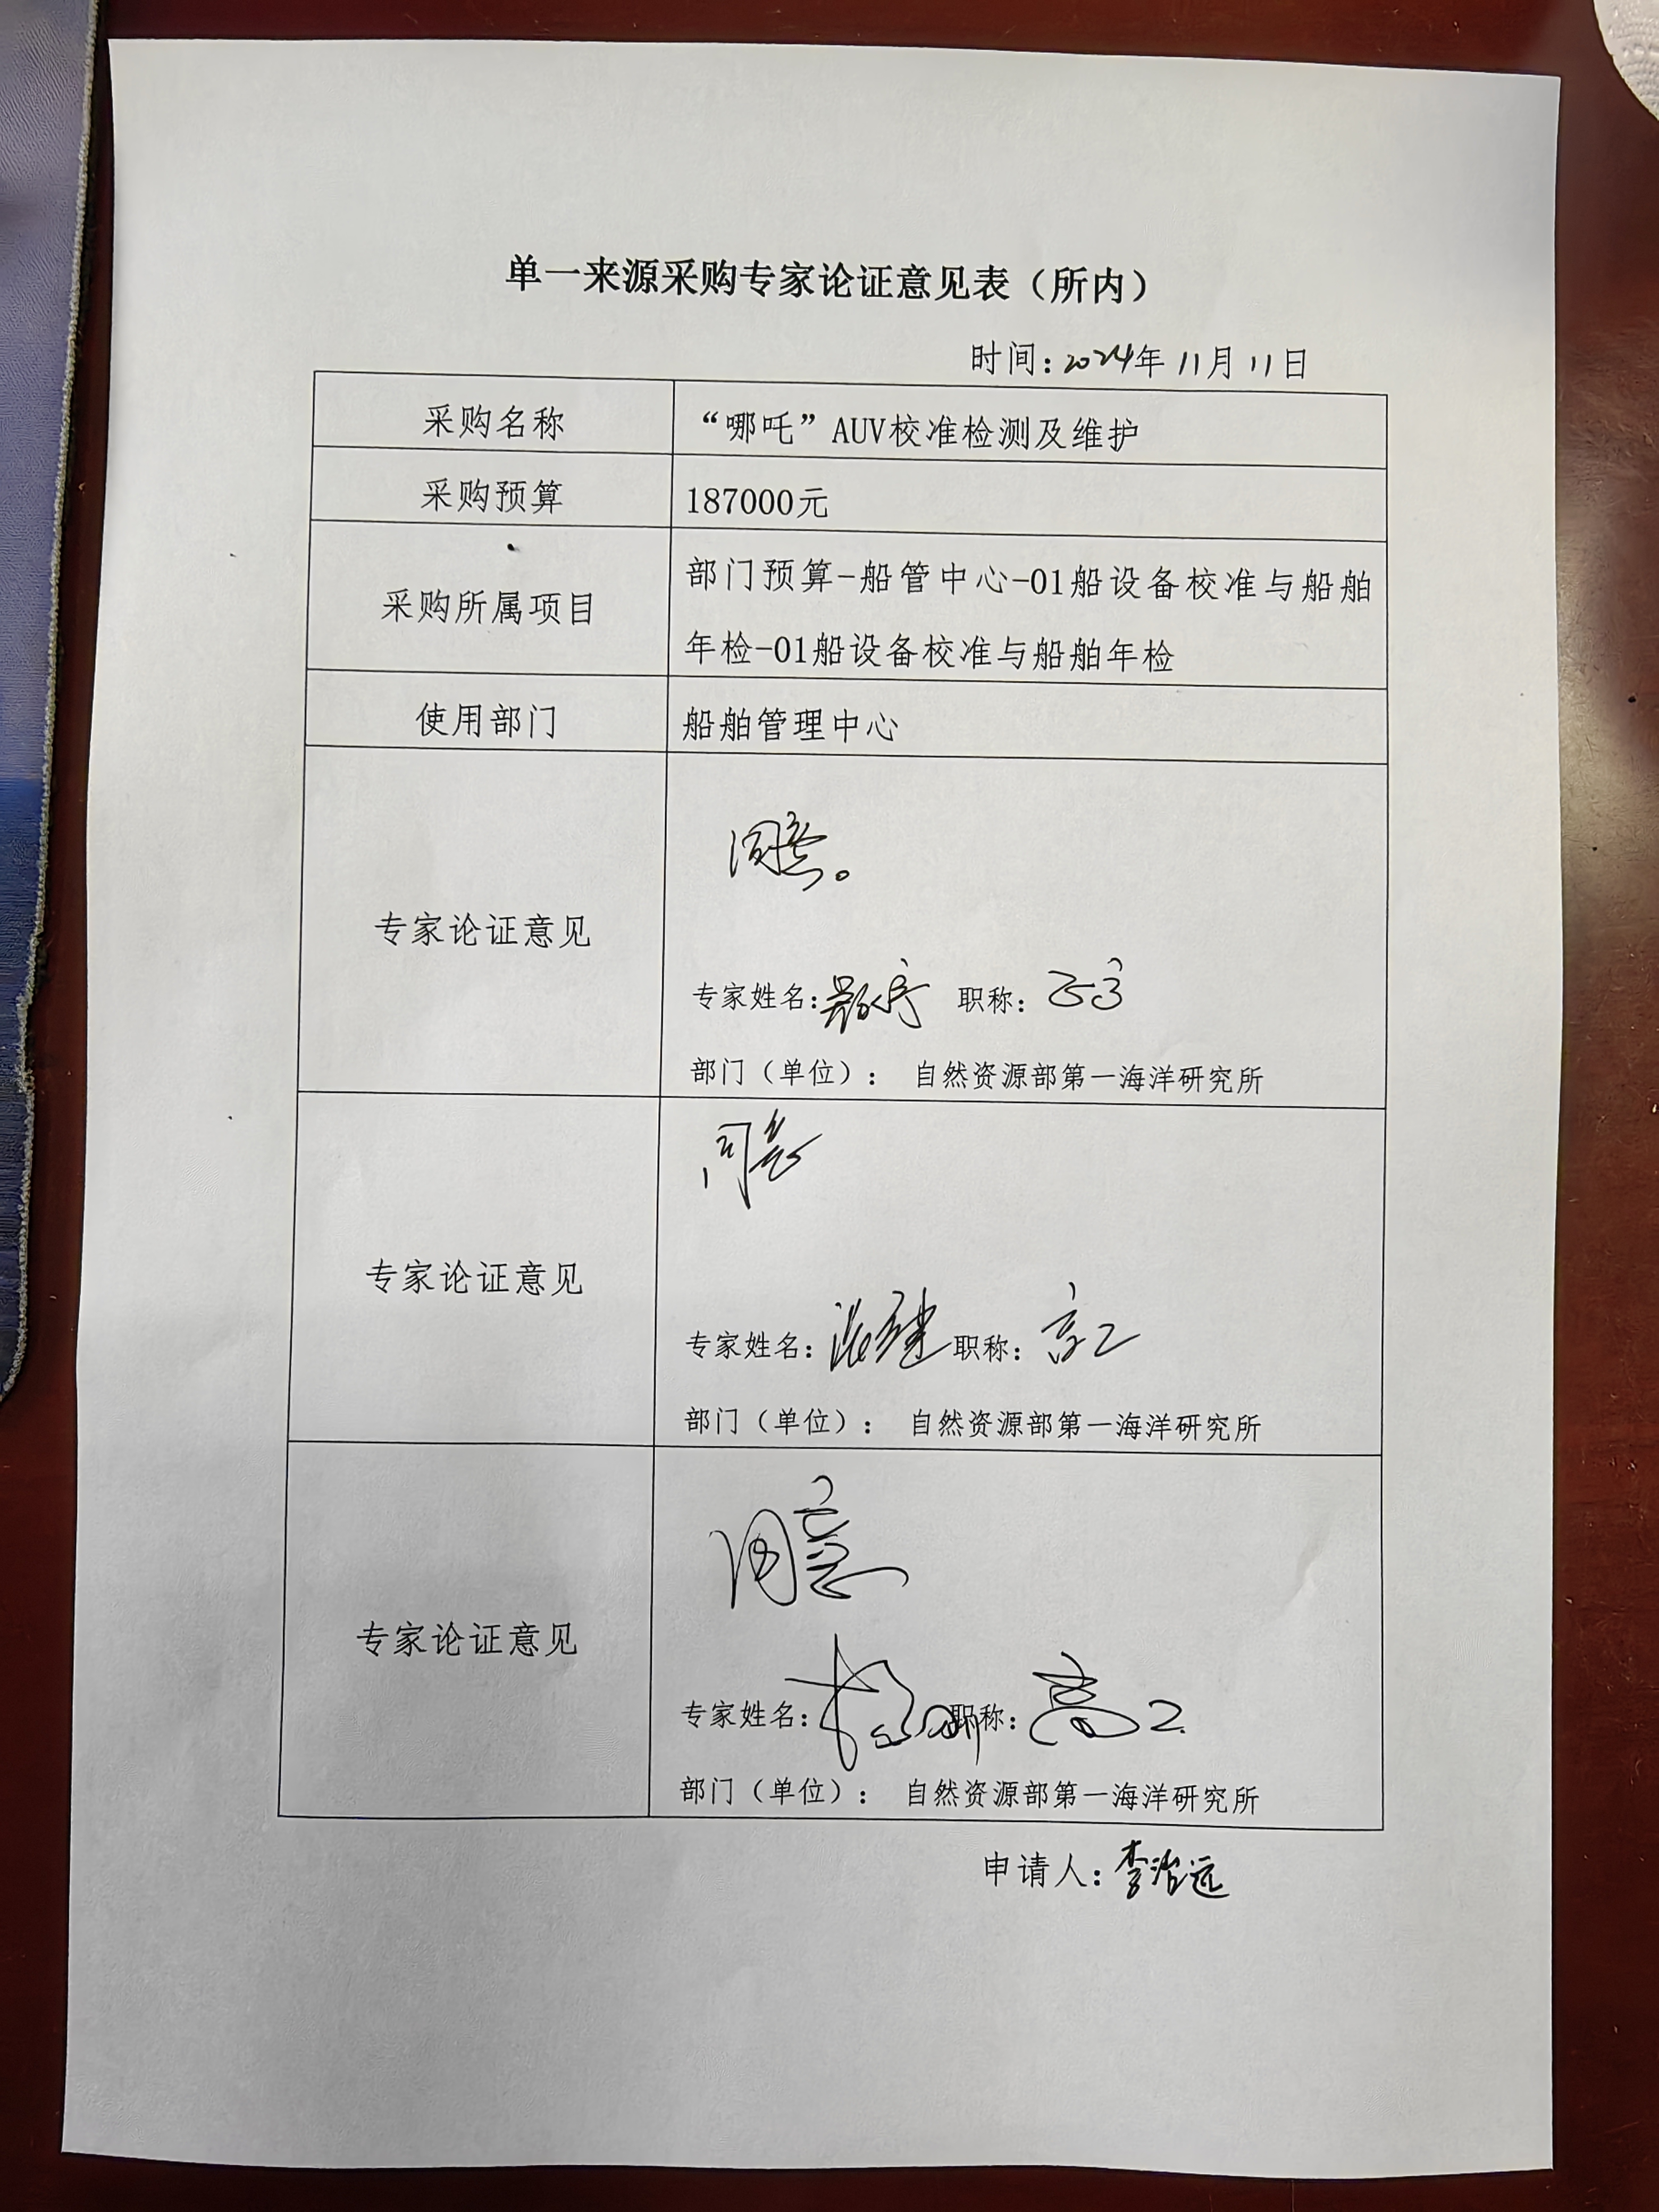 单一来源采购专家论证意见表（所内）
时间：2024年11月11日
采购名称
“哪吒”AUV校准检测及维护
采购预算
187000元
采购所属项目
部门预算-船管中心-01船设备校准与船舶
年检-01船设备校准与船舶年检
使用部门
船舶管理中心
同意。
专家论证意见
专家姓名： 职称：正高
部门（单位）： 自然资源部第一海洋研究所
同意
专家论证意见
专家姓名： 职称：高工
部门（单位）： 自然资源部第一海洋研究所
同意
专家论证意见
专家姓名： 职称：高工
部门（单位）： 自然资源部第一海洋研究所
申请人：李治远